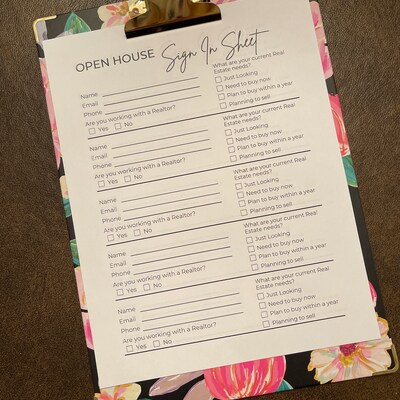 OPEN HOUSE Sign In Sheet
Name
Email
Phone
Are you working with a Realtor?
☐ Yes ☐ No
What are your current Real
Estate needs?
☐ Just Looking
☐ Need to buy now
☐ Plan to buy within a year
☐ Planning to sell
Name
Email
Phone
Are you working with a Realtor?
☐ Yes ☐ No
What are your current Real
Estate needs?
☐ Just Looking
☐ Need to buy now
☐ Plan to buy within a year
☐ Planning to sell
Name
Email
Phone
Are you working with a Realtor?
☐ Yes ☐ No
What are your current Real
Estate needs?
☐ Just Looking
☐ Need to buy now
☐ Plan to buy within a year
☐ Planning to sell
Name
Email
Phone
Are you working with a Realtor?
☐ Yes ☐ No
What are your current Real
Estate needs?
☐ Just Looking
☐ Need to buy now
☐ Plan to buy within a year
☐ Planning to sell
Name
Email
Phone
Are you working with a Realtor?
☐ Yes ☐ No
What are your current Real
Estate needs?
☐ Just Looking
☐ Need to buy now
☐ Plan to buy within a year
☐ Planning to sell